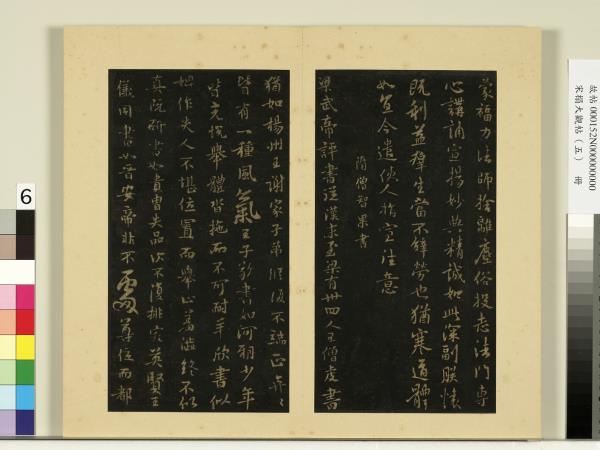 蒙福力法師捨離塵俗投志法門專
心講誦宣揚妙典精誠如此深副朕懷
既利益群生當不辭勞也猶寒道體
如宜今遣使人指宣往意
隋僧智果書
梁武帝評書從漢末至梁有卅四人王僧虔書
猶如楊州王謝家子弟縱復不端正奕奕
皆有一種風氣王子敬書如河朔少年
皆充悅舉體沓拖而不可耐羊欣書似
婢作夫人不堪位置而舉止羞澀終不似
真阮研書如貴胄失品次不復排突英賢王
儀同書如晉安帝非不處尊位而都
故帖 000152N000000000
宋搨大觀帖（五） 冊
6